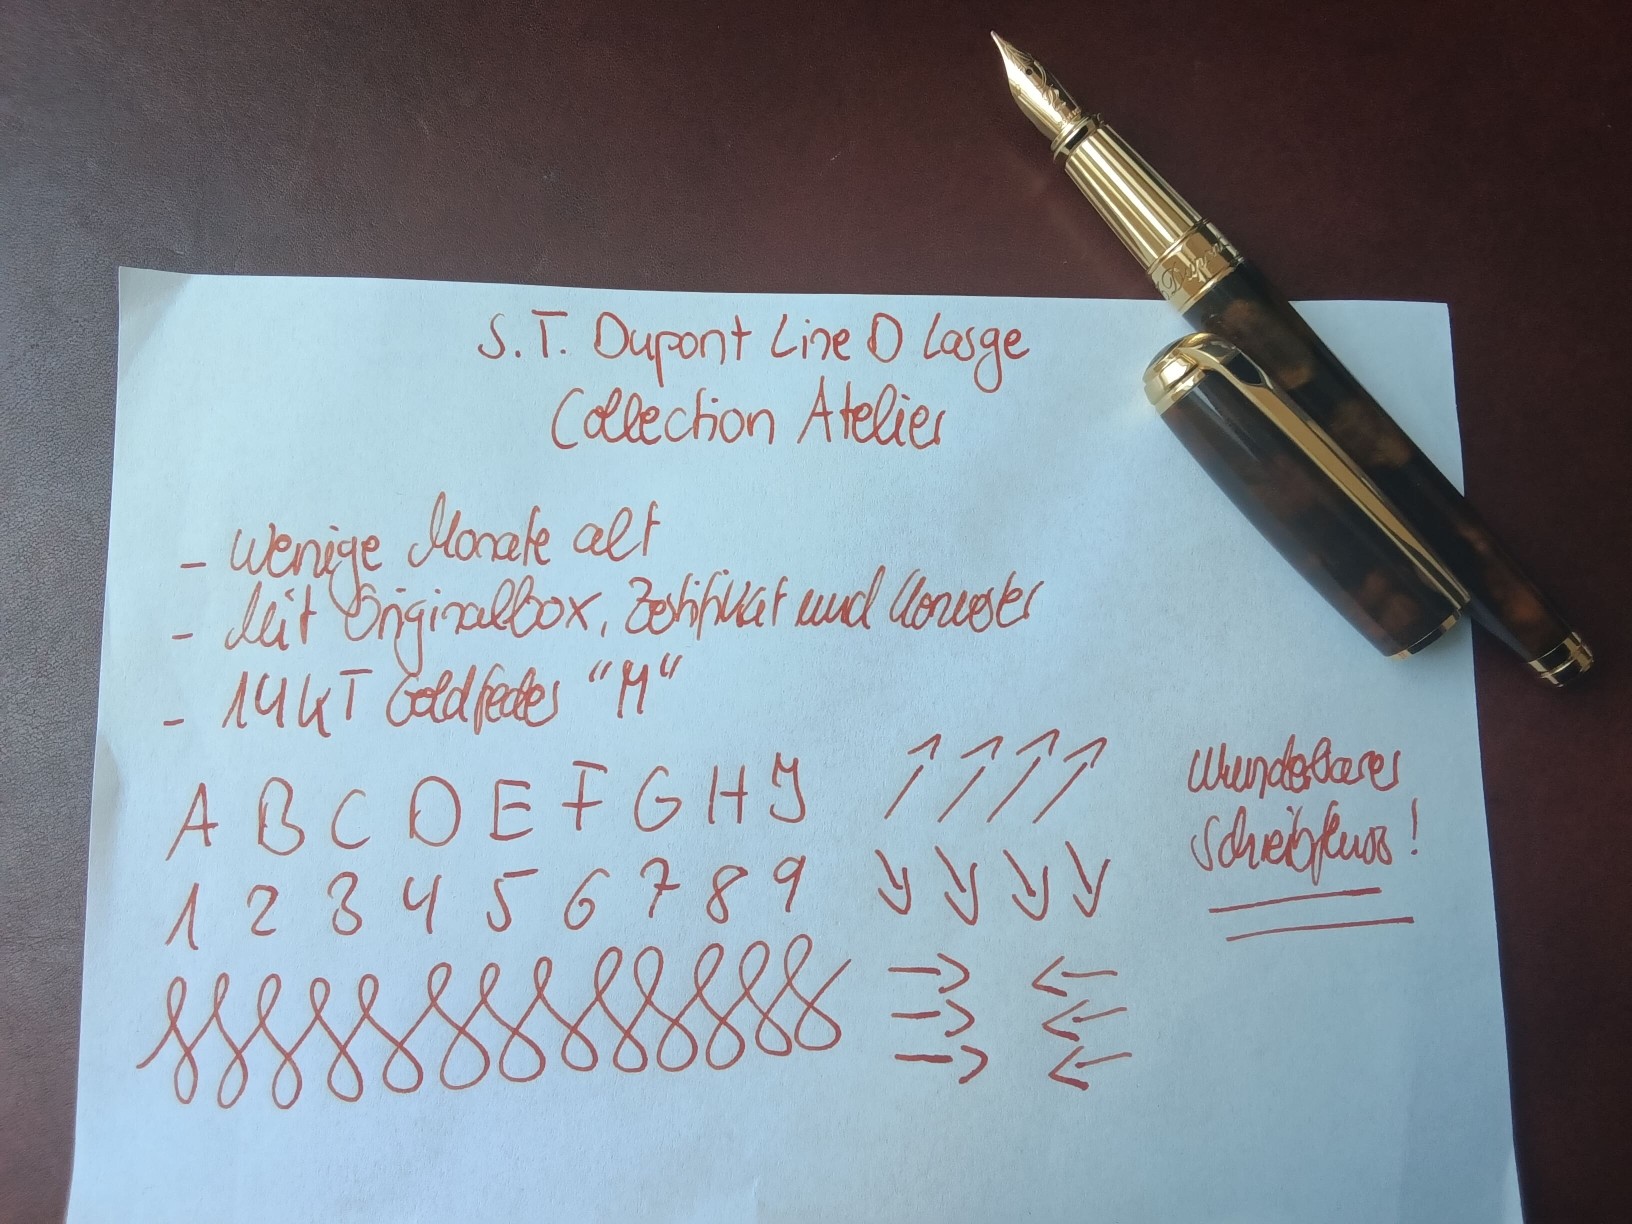 S.T. Dupont Line D Large
Collection Atelier
- Wenige Monate alt
- Mit Originalbox, Zertifikat und Konverter
- 14 kT Goldfeder "M"
A B C D E F G H J
1 2 3 4 5 6 7 8 9
Wunderbarer
Schreibfluss!
Dupont